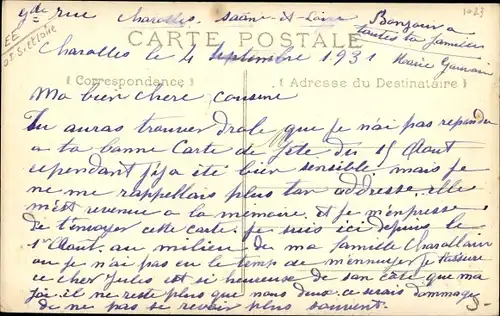 gde rue Charolles. Saône-et-Loire Bonjour a
toutes ta famille
1023
CARTE POSTALE
Charolles le 4 Septembre 1931
Marie
Correspondance
Adresse du Destinataire
Ma bien chere cousine
Tu auras trouver drole que je n'ai pas repondu
a ta bonne Carte de fete du 15 Aout
cependant j'ai été bien sensible mais je
ne me rappellais plus ton addresse. elle
m'est revenue a la memoire. et je m'enpresse
de t'envoyer cette carte. je suis ici depuis le
1er Aout. au milieu de ma famille
ou je n'ai pas eu le temp de m'ennuyer je t'assure
ce cher Jules est si heureuse de son coté que ma
joie. il ne reste plus que nous deux. ce serais dommage
de ne pas se revoir plus souvent.